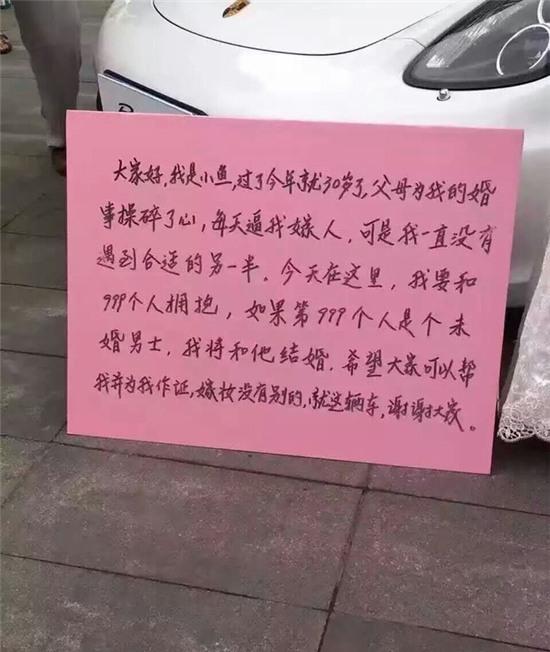 大家好,我是小鱼,过了今年就30岁了,父母为我的婚
事操碎了心,每天逼我嫁人,可是我一直没有
遇到合适的另一半。今天在这里,我要和
999个人拥抱,如果第999个人是个未
婚男士,我将和他结婚。希望大家可以帮
我并为我作证,嫁妆没有别的,就这辆车,谢谢大家。